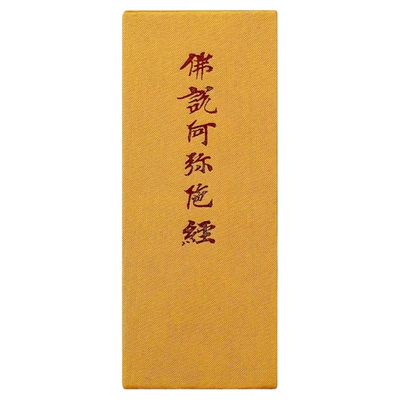 佛說阿弥陀經